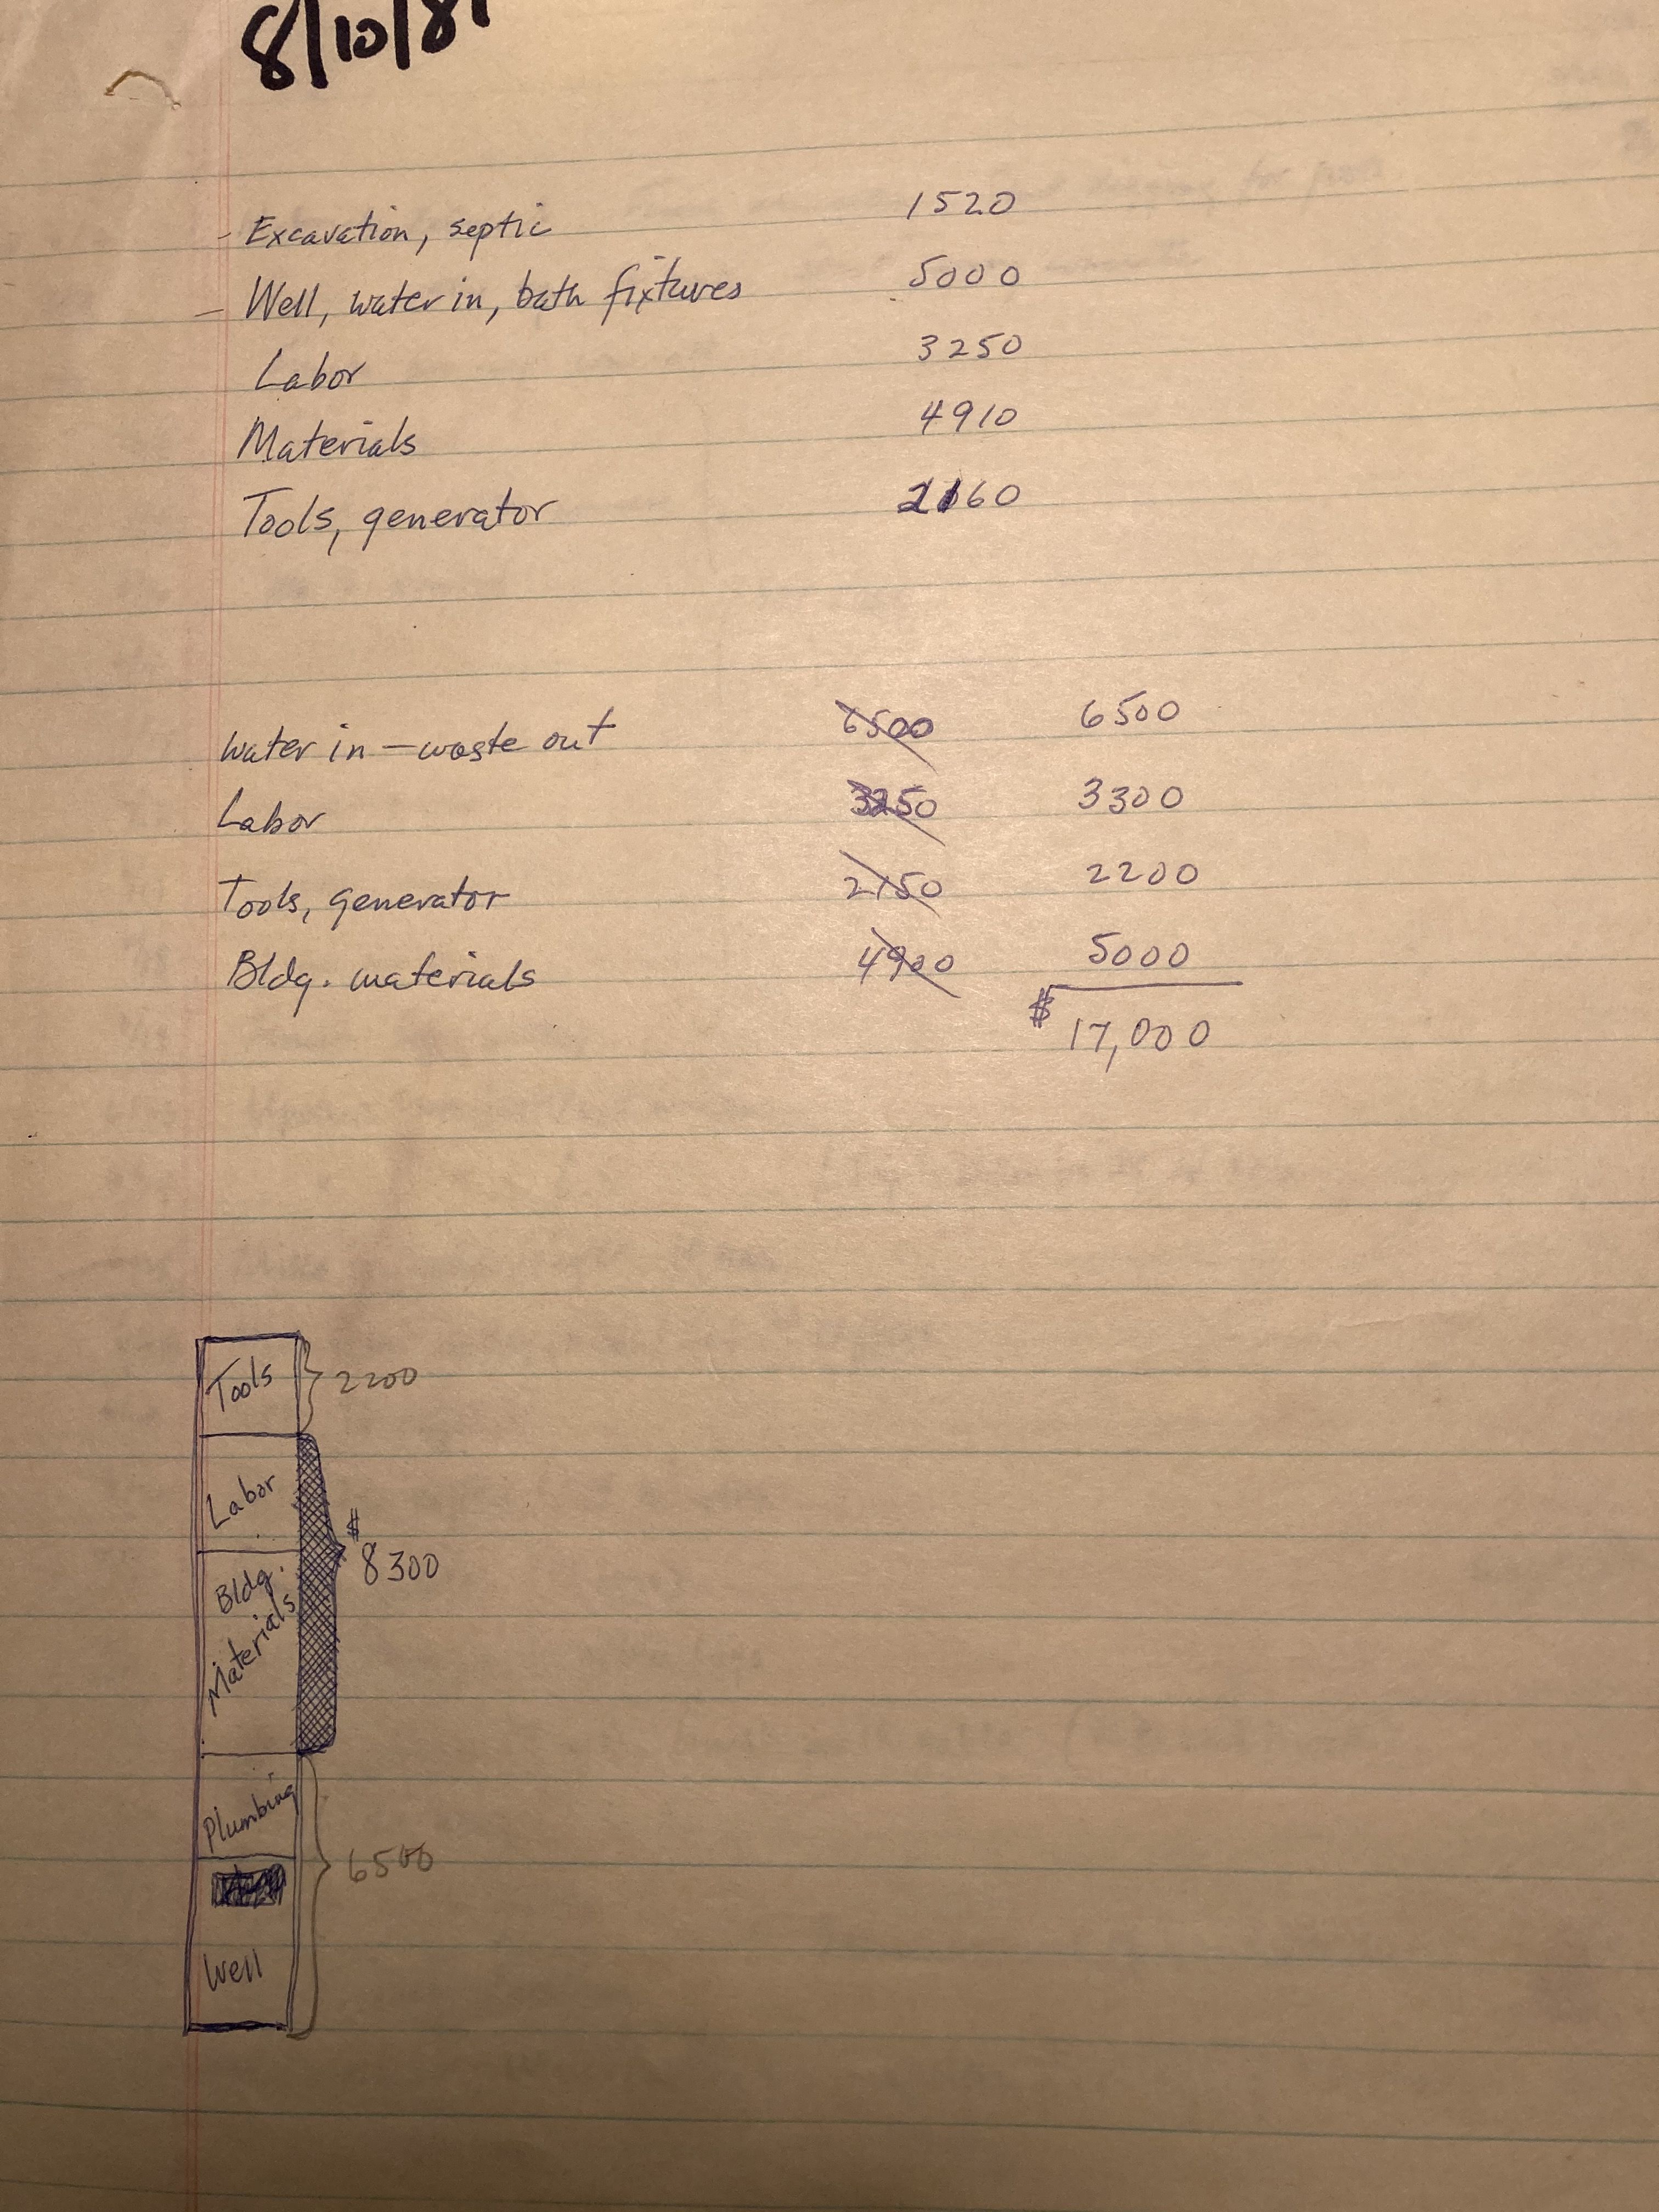 8/10/81
- Excavation, septic 1520
- Well, water in, bath fixtures 5000
Labor 3250
Materials 4910
Tools, generator 2160
Water in - waste out 6500 6500
Labor 3250 3300
Tools, generator 2150 2200
Bldg. materials 4900 5000
$ 17,000
Tools 2200
Labor
$ 8300
Bldg.
Materials
Plumbing
6500
Well